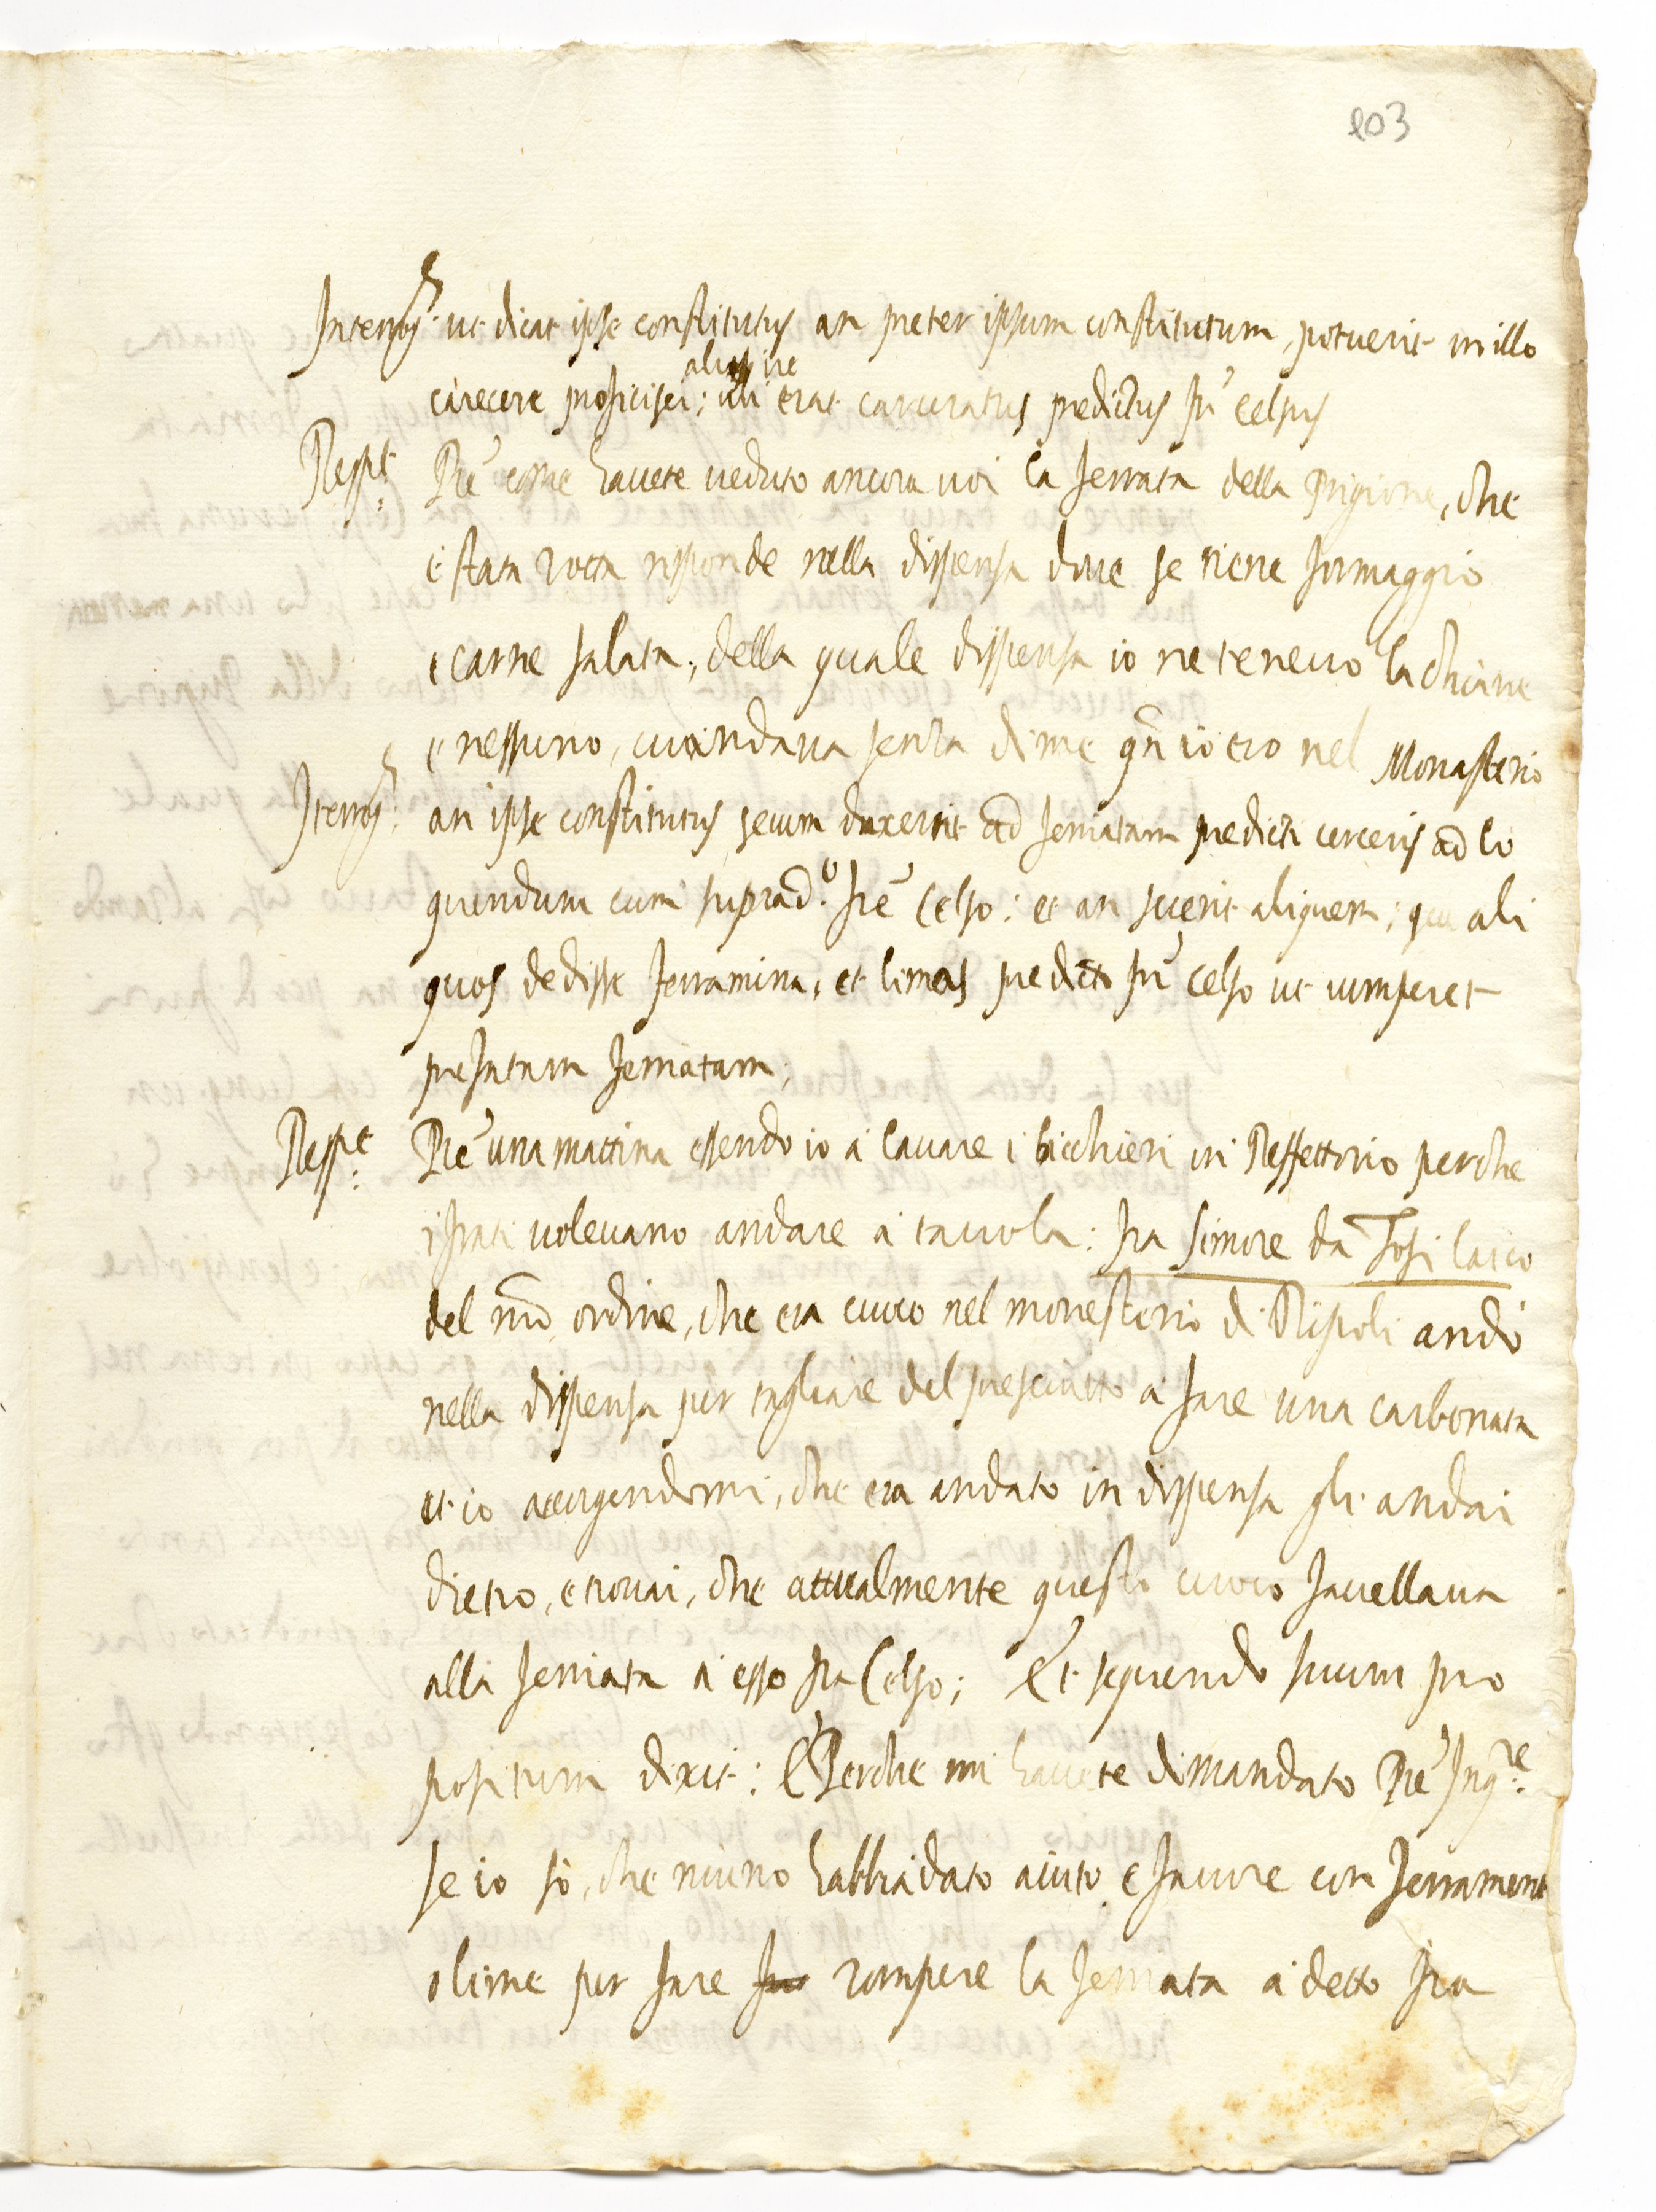 103
Interrog.s ut dicat ipse constitutus an preter ipsum constitutum, potuerit in illo
carcere proficisci; ubi erat carceratus predictus fr' Celsus
Resp.t Pre' come havete veduto ancora voi la ferrata della Prigione, che
è stata rotta risponde nella dispensa dove se tiene formaggio
e carne salata, della quale dispensa io ne tenevo la chiave
e nessuno, ci andava senza di me qn io ero nel Monasterio
Iterrog.s an ipse constitutus secum duxerit ad ferriatam predicti carceris ad lo
quendum cum suprad.o fre' Celso: et an sciverit aliquem; ali
quos dedisse ferramina, et limas predicto fr' Celso ut rumperet
prefatam ferriatam;
Resp.t Pre' una mattina essendo io à lavare i bicchieri in Reffettorio perche
i frati volevano andare à tavola: fra Simone da Tosi laico
del nro ordine, che era cuoco nel monesterio di Ripoli andò
nella dispensa per tagliare del presciutto à fare una carbonata
et io accorgendomi, che era andato in dispensa gli andai
dietro, e trovai, che attualmente questo cuoco favellava
alla ferriata à esso fra Celso; Et sequendo suum pro
positum dixit: E Perche mi havete dimandato Pre' Inq.re
se io sò, che niuno habbia dato aiuto e favore con ferrament
o lime per fare rompere la ferriata à detto fra